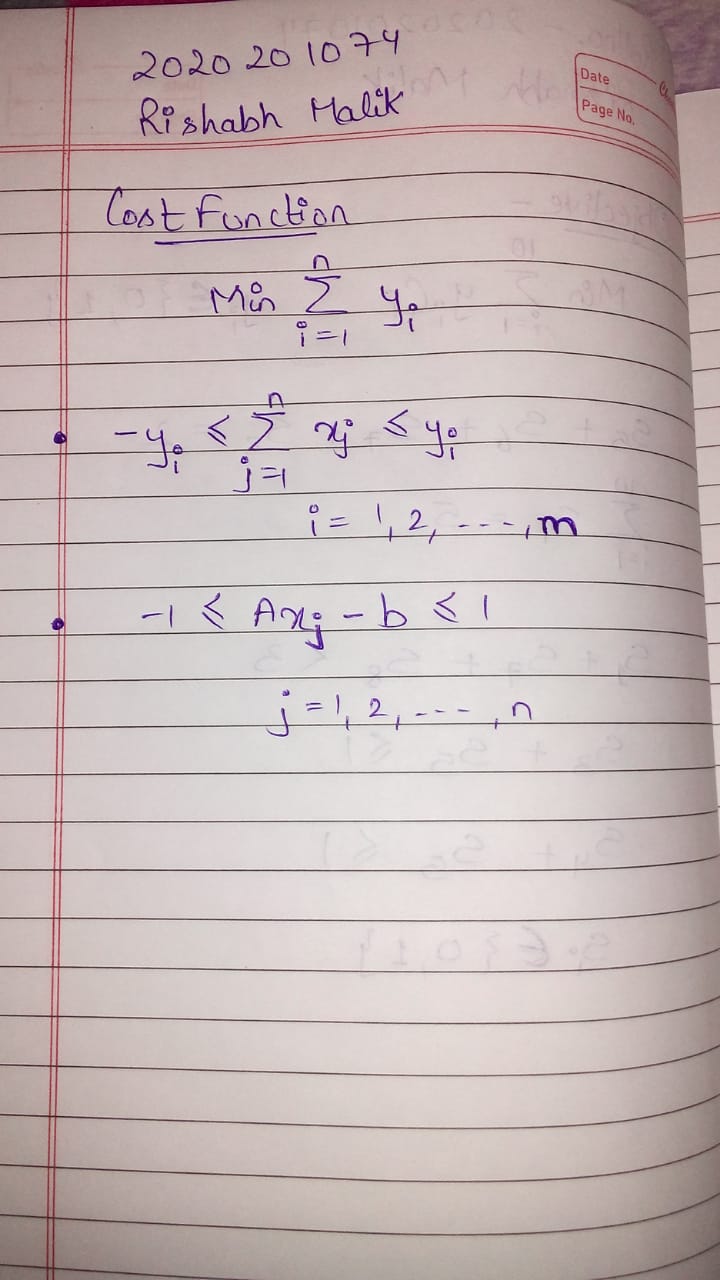 2020201074
Rishabh Malik
Date
Page No.
Cost Function
Min n∑i=1 yi
• -yi ≤ n∑j=1 xj ≤ yi
i = 1, 2, ----, m
• -1 ≤ Axj - b ≤ 1
j = 1, 2, ----, n